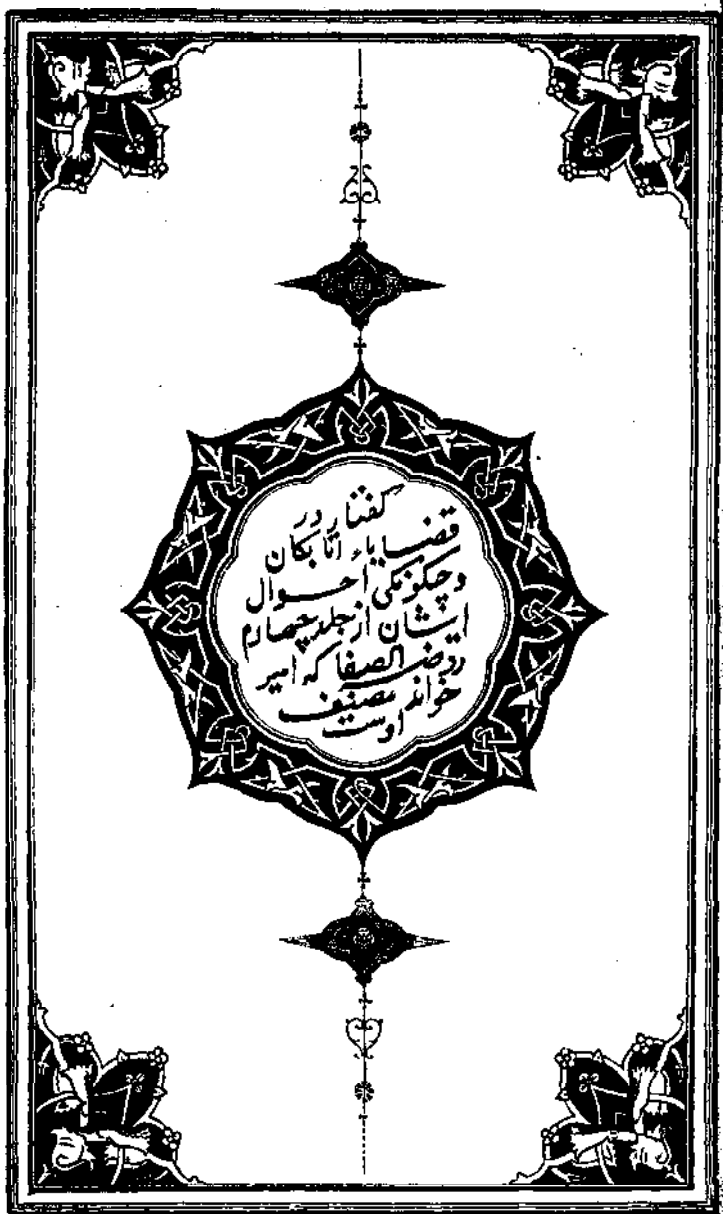 كفتار در
قضاياء اتابكان
و چكونكى احوال
ايشان از جلد چهارم
روضة الصفا كه امير
خواند مصنف
اوست